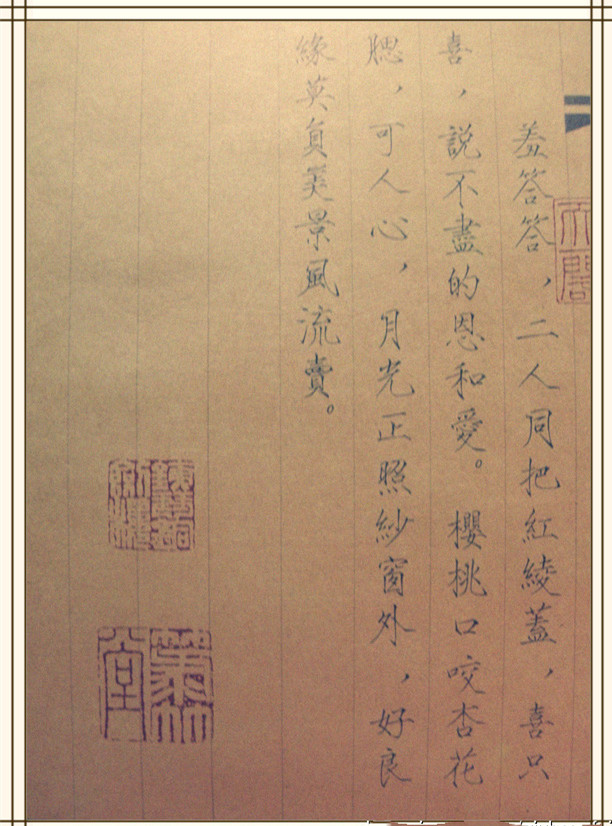 羞答答，二人同把紅綾蓋，喜只
喜，說不盡的恩和愛。櫻桃口咬杏花
腮，可人心，月光正照紗窗外，好良
緣莫負美景風流賣。